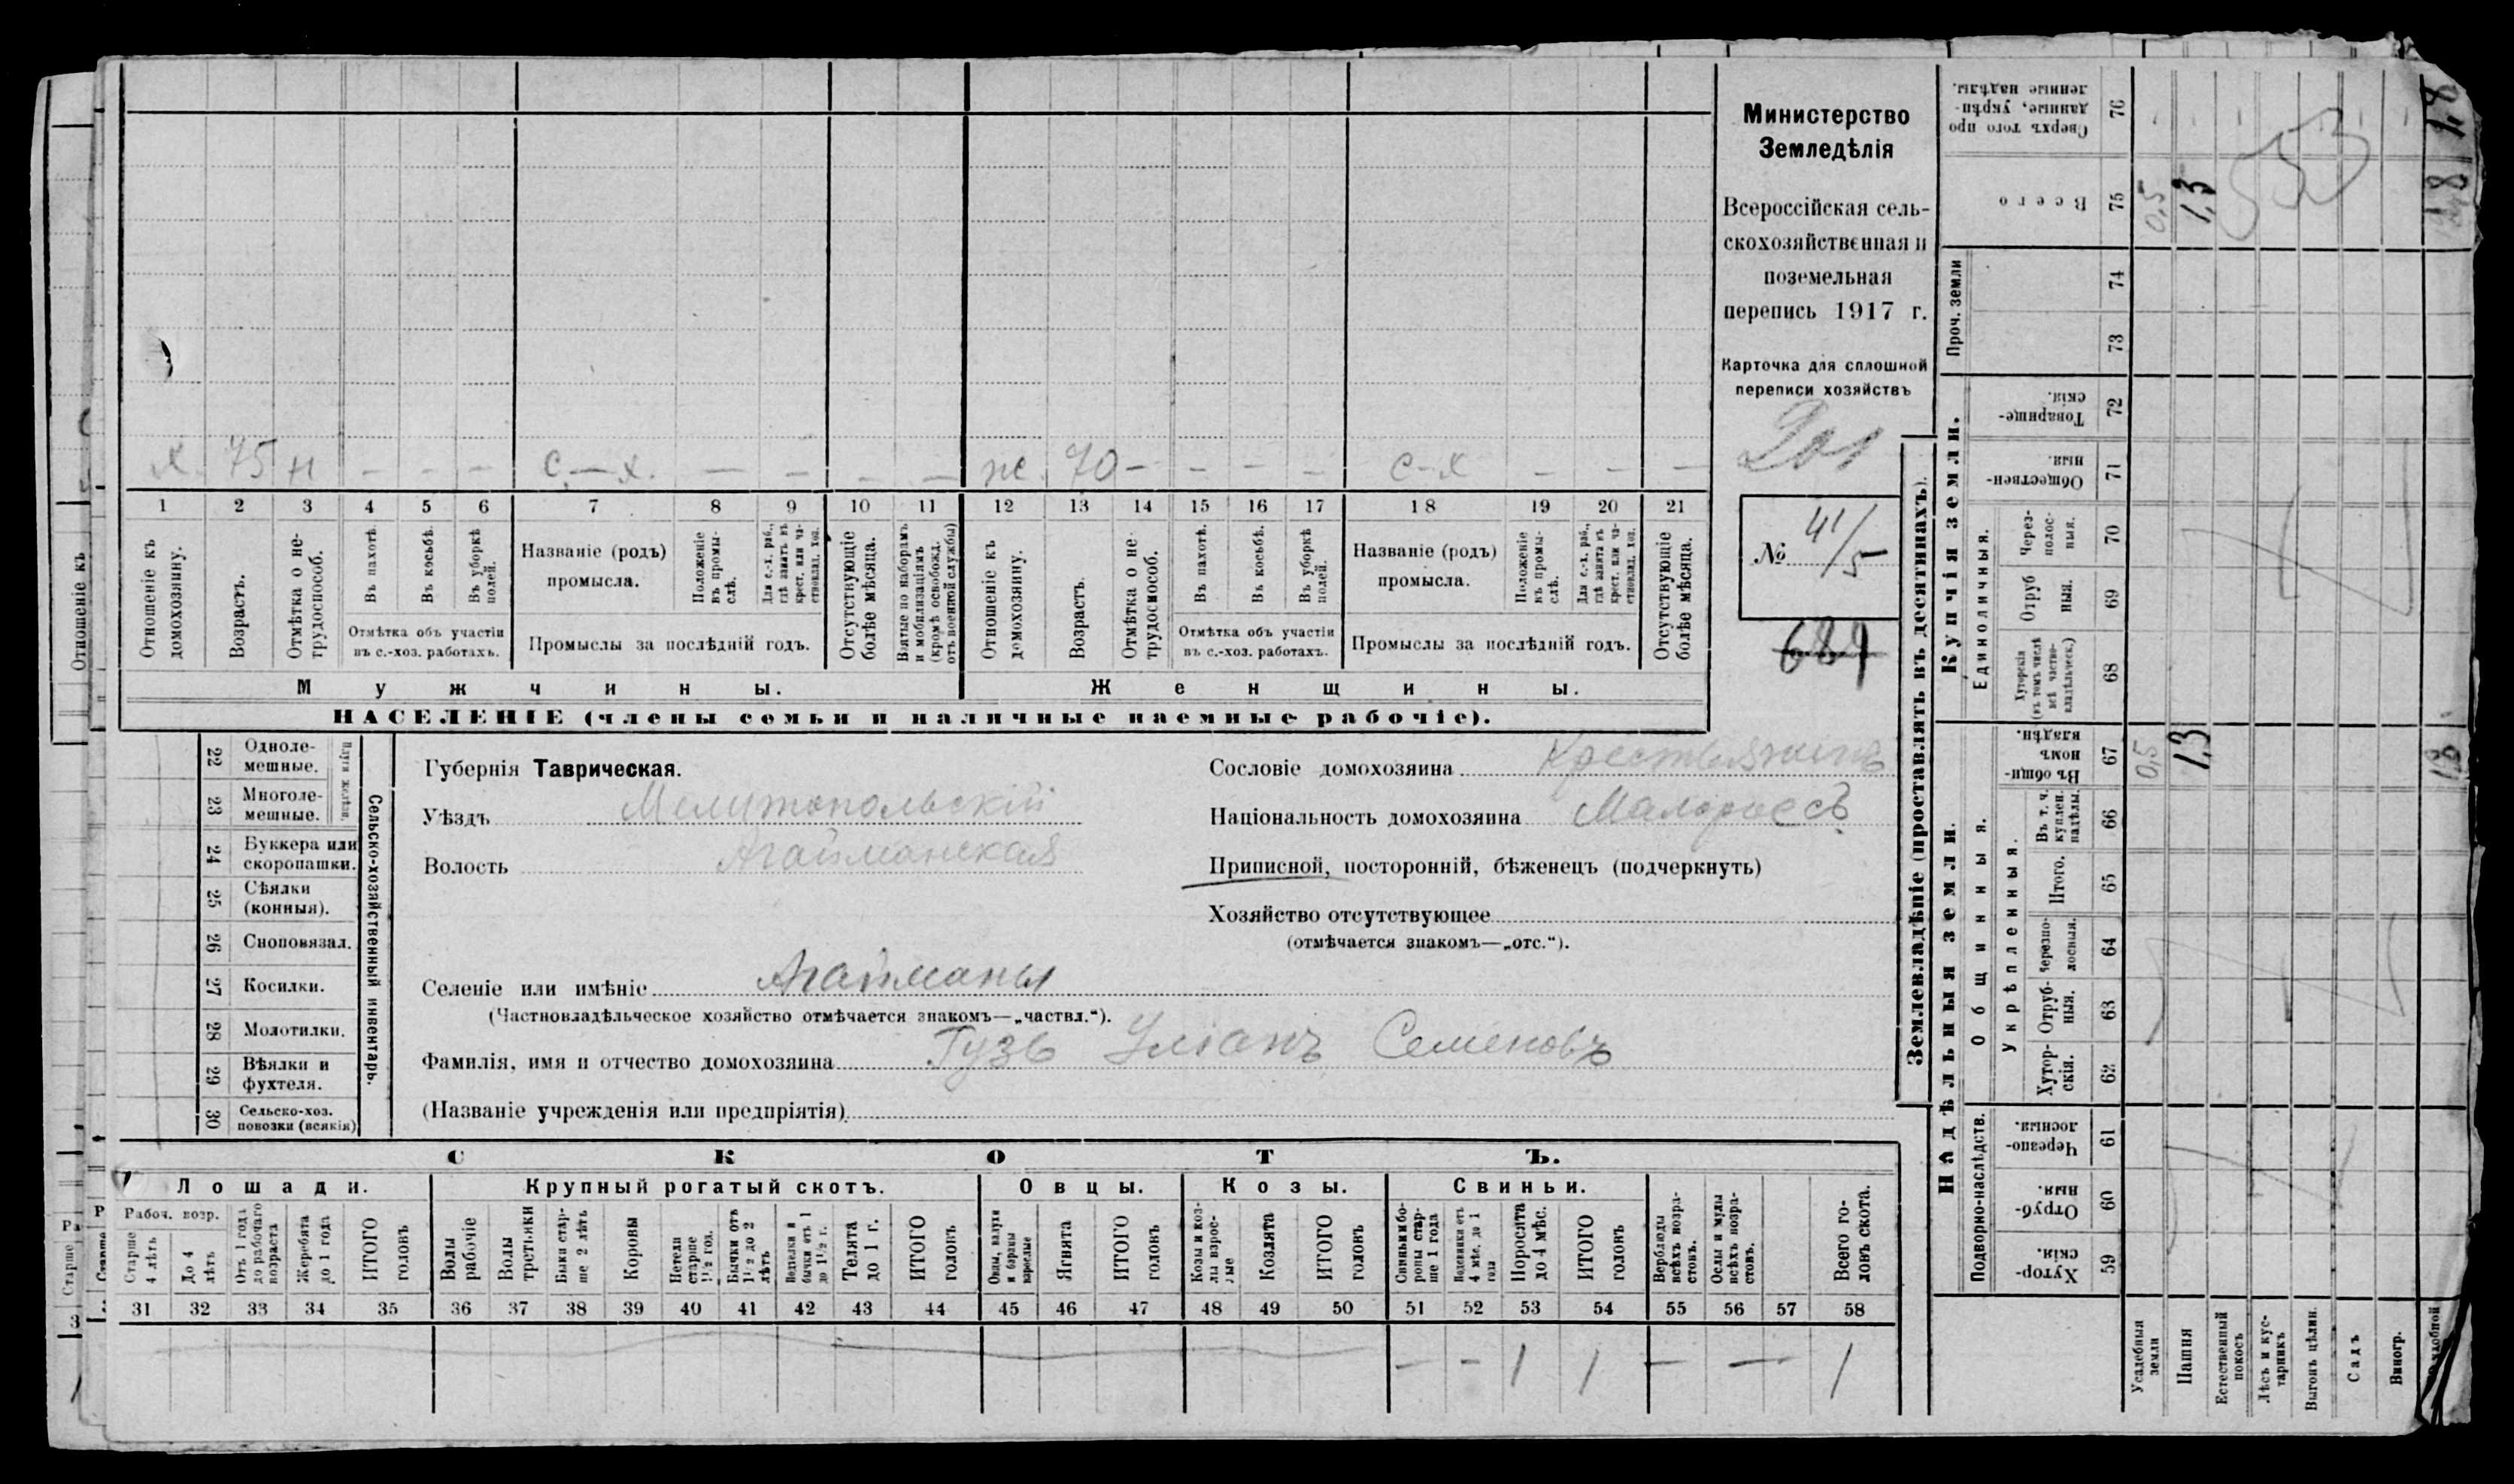 Министерство
Земледѣлія
Всероссійская сель-
скохозяйственная и
поземельная
перепись 1917 г.
Карточка для сплошной
переписи хозяйствъ
201
№ 41/5
689
х. 75 н - - - с.-х. - - - - ж. 70 - - - - с-х - - -
1 2 3 4 5 6 7 8 9 10 11 12 13 14 15 16 17 18 19 20 21
Отношеніе къ домохозяину.
Возрастъ.
Отмѣтка о не-трудоспособ.
Въ пахотѣ.
Въ косьбѣ.
Въ уборкѣ полей.
Отмѣтка объ участіи
въ с.-хоз. работахъ.
Названіе (родъ)
промысла.
Положеніе въ промы-слѣ.
Для с.-х. раб., гдѣ занятъ въ крест. или ча-стновлад. хоз.
Промыслы за послѣдній годъ.
Отсутствующіе болѣе мѣсяца.
Взятые по наборамъ и мобилизаціямъ (кромѣ освобожд. отъ военной службы)
Отношеніе къ домохозяину.
Возрастъ.
Отмѣтка о не-трудоспособ.
Въ пахотѣ.
Въ косьбѣ.
Въ уборкѣ полей.
Отмѣтка объ участіи
въ с.-хоз. работахъ.
Названіе (родъ)
промысла.
Положеніе въ промы-слѣ.
Для с.-х. раб., гдѣ занята въ крест. или ча-стновлад. хоз.
Промыслы за послѣдній годъ.
Отсутствующіе болѣе мѣсяца.
Мужчины. Женщины.
НАСЕЛЕНІЕ (члены семьи и наличные наемные рабочіе).
Отношеніе къ
22 Одноле-мешные.
23 Многоле-мешные.
Плуги желѣзн.
24 Буккера или скоропашки.
25 Сѣялки (конныя).
26 Сноповязал.
27 Косилки.
28 Молотилки.
29 Вѣялки и фухтеля.
30 Сельско-хоз. повозки (всякія)
Сельско-хозяйственный инвентарь.
Губернія Таврическая.
Уѣздъ Мелитопольскій
Волость Агайманская
Сословіе домохозяина Крестьянинъ
Національность домохозяина Малороссъ
Приписной, посторонній, бѣженецъ (подчеркнуть)
Хозяйство отсутствующее
(отмѣчается знакомъ—„отс.“).
Селеніе или имѣніе Агайманы
(Частновладѣльческое хозяйство отмѣчается знакомъ—„частвл.“).
Фамилія, имя и отчество домохозяина Гузь Уліанъ Семеновъ
(Названіе учрежденія или предпріятія)
СКОТЪ.
Лошади. Крупный рогатый скотъ. Овцы. Козы. Свиньи.
Рабоч. возр.
Старше 4 лѣтъ
До 4 лѣтъ
Отъ 1 года до рабочаго возраста
Жеребята до 1 года
ИТОГО головъ
Волы рабочіе
Волы третьяки
Быки стар-ше 2 лѣтъ
Коровы
Нетели старше 1½ год.
Бычки отъ 1½ до 2 лѣтъ
Нетелки и бычки отъ 1 до 1½ г.
Телята до 1 г.
ИТОГО головъ
Овцы, валухи и бараны взрослые
Ягнята
ИТОГО головъ
Козы и коз-лы взрос-лые
Козлята
ИТОГО головъ
Свиньи и бо-ровы стар-ше 1 года
Подсвинки отъ 4 мѣс. до 1 года
Поросята до 4 мѣс.
ИТОГО головъ
Верблюды всѣхъ возра-стовъ.
Ослы и мулы всѣхъ возра-стовъ.
Всего го-ловъ скота.
31 32 33 34 35 36 37 38 39 40 41 42 43 44 45 46 47 48 49 50 51 52 53 54 55 56 57 58
- - 1 1 - - 1
Землевладѣніе (проставлять въ десятинахъ).
Надѣльныя земли.
Купчія земли.
Проч. земли
Подворно-наслѣдств.
Общинныя.
Укрѣпленныя.
Единоличныя.
Хутор-скія. 59
Отруб-ныя. 60
Черезпо-лосныя. 61
Хутор-скія. 62
Отруб-ныя. 63
Черезпо-лосныя. 64
Итого. 65
Въ т. ч. куплен. надѣлы. 66
Въ общи-номъ владѣн. 67
Хуторскія (въ томъ числѣ всѣ частно-владѣльческ.) 68
Отруб ныя. 69
Через-полос-ныя. 70
Обществен-ныя. 71
Товарище-скія. 72
73
74
Всего 75
Сверхъ того про данные, укрѣп-ленные надѣлы. 76
Усадебныя земли 0,5 0,5
Пашня 1,3 1,3
Естественный покосъ
Лѣсъ и кус-тарникъ
Выгонъ цѣлин.
Садъ
Виногр.
1,8 1,8
553